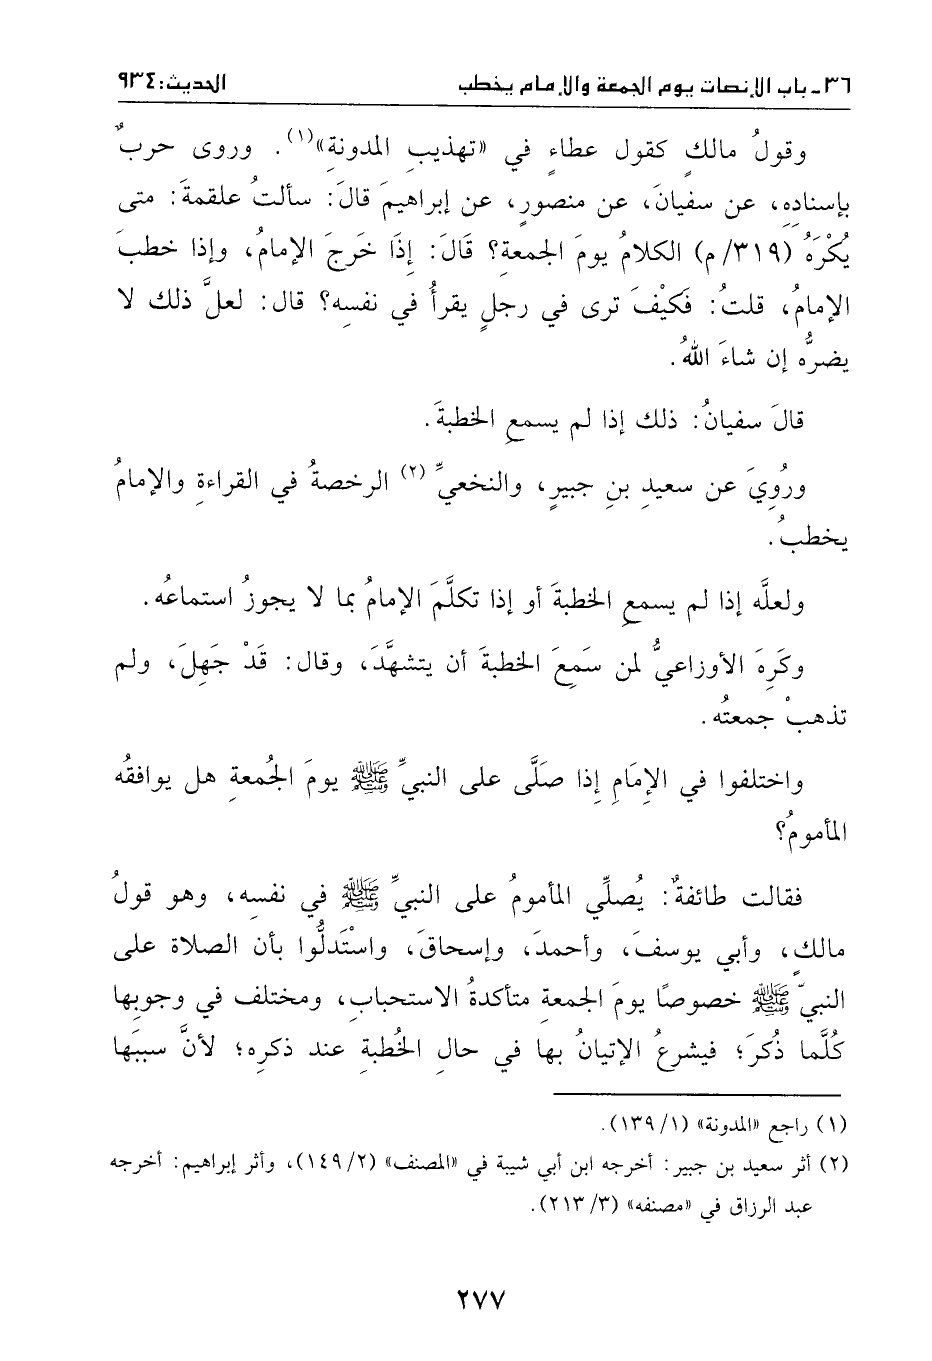 ٣٦- باب الإنصات يوم الجمعة والإمام يخطب الحديث: ٩٣٤
وقولُ مالكٍ كقول عطاءٍ في «تهذيبِ المدونةِ»(١). وروى حربٌ
بإسنادِه، عن سفيانَ، عن منصورٍ، عن إبراهيمَ قالَ: سألتُ علقمةَ: متى
يُكْرَهُ (٣١٩/م) الكلامُ يومَ الجمعةِ؟ قَالَ: إِذَا خَرجَ الإمامُ، وإذا خطبَ
الإمامُ، قلتُ: فَكيْفَ ترى في رجلٍ يقرأُ في نفسِه؟ قال: لعلَّ ذلك لا
يضرُّه إن شاءَ اللهُ.
قالَ سفيانُ: ذلك إذا لم يسمعِ الخطبةَ.
ورُوِيَ عن سعيدِ بنِ جبيرٍ، والنخعيِّ(٢) الرخصةُ في القراءةِ والإمامُ
يخطبُ.
ولعلَّه إذا لم يسمعِ الخطبةَ أو إذا تكلَّمَ الإمامُ بما لا يجوزُ استماعُه.
وكَرِهَ الأوزاعيُّ لمن سَمِعَ الخطبةَ أن يتشهَّدَ، وقال: قَدْ جَهِلَ، ولم
تذهبْ جمعتُه.
واختلفوا في الإِمَامِ إِذا صَلَّى على النبيِّ ﷺ يومَ الجُمعةِ هل يوافقُه
المأمومُ؟
فقالت طائفةٌ: يُصلِّي المأمومُ على النبيِّ ﷺ في نفسِه، وهو قولُ
مالكٍ، وأبي يوسفَ، وأحمدَ، وإسحاقَ، واسْتَدلُّوا بأن الصلاةَ على
النبيِّ ﷺ خصوصًا يومَ الجمعةِ متأكدةُ الاستحبابِ، ومختلف في وجوبِها
كُلَّما ذُكرَ؛ فيشرعُ الإتيانُ بها في حالِ الخُطبةِ عند ذكرِه؛ لأنَّ سببَها
(١) راجع «المدونة» (١/ ١٣٩).
(٢) أثر سعيد بن جبير: أخرجه ابن أبي شيبة في «المصنف» (١٤٩/٢)، وأثر إبراهيم: أخرجه
عبد الرزاق في «مصنفه» (٣/ ٢١٣).
٢٧٧